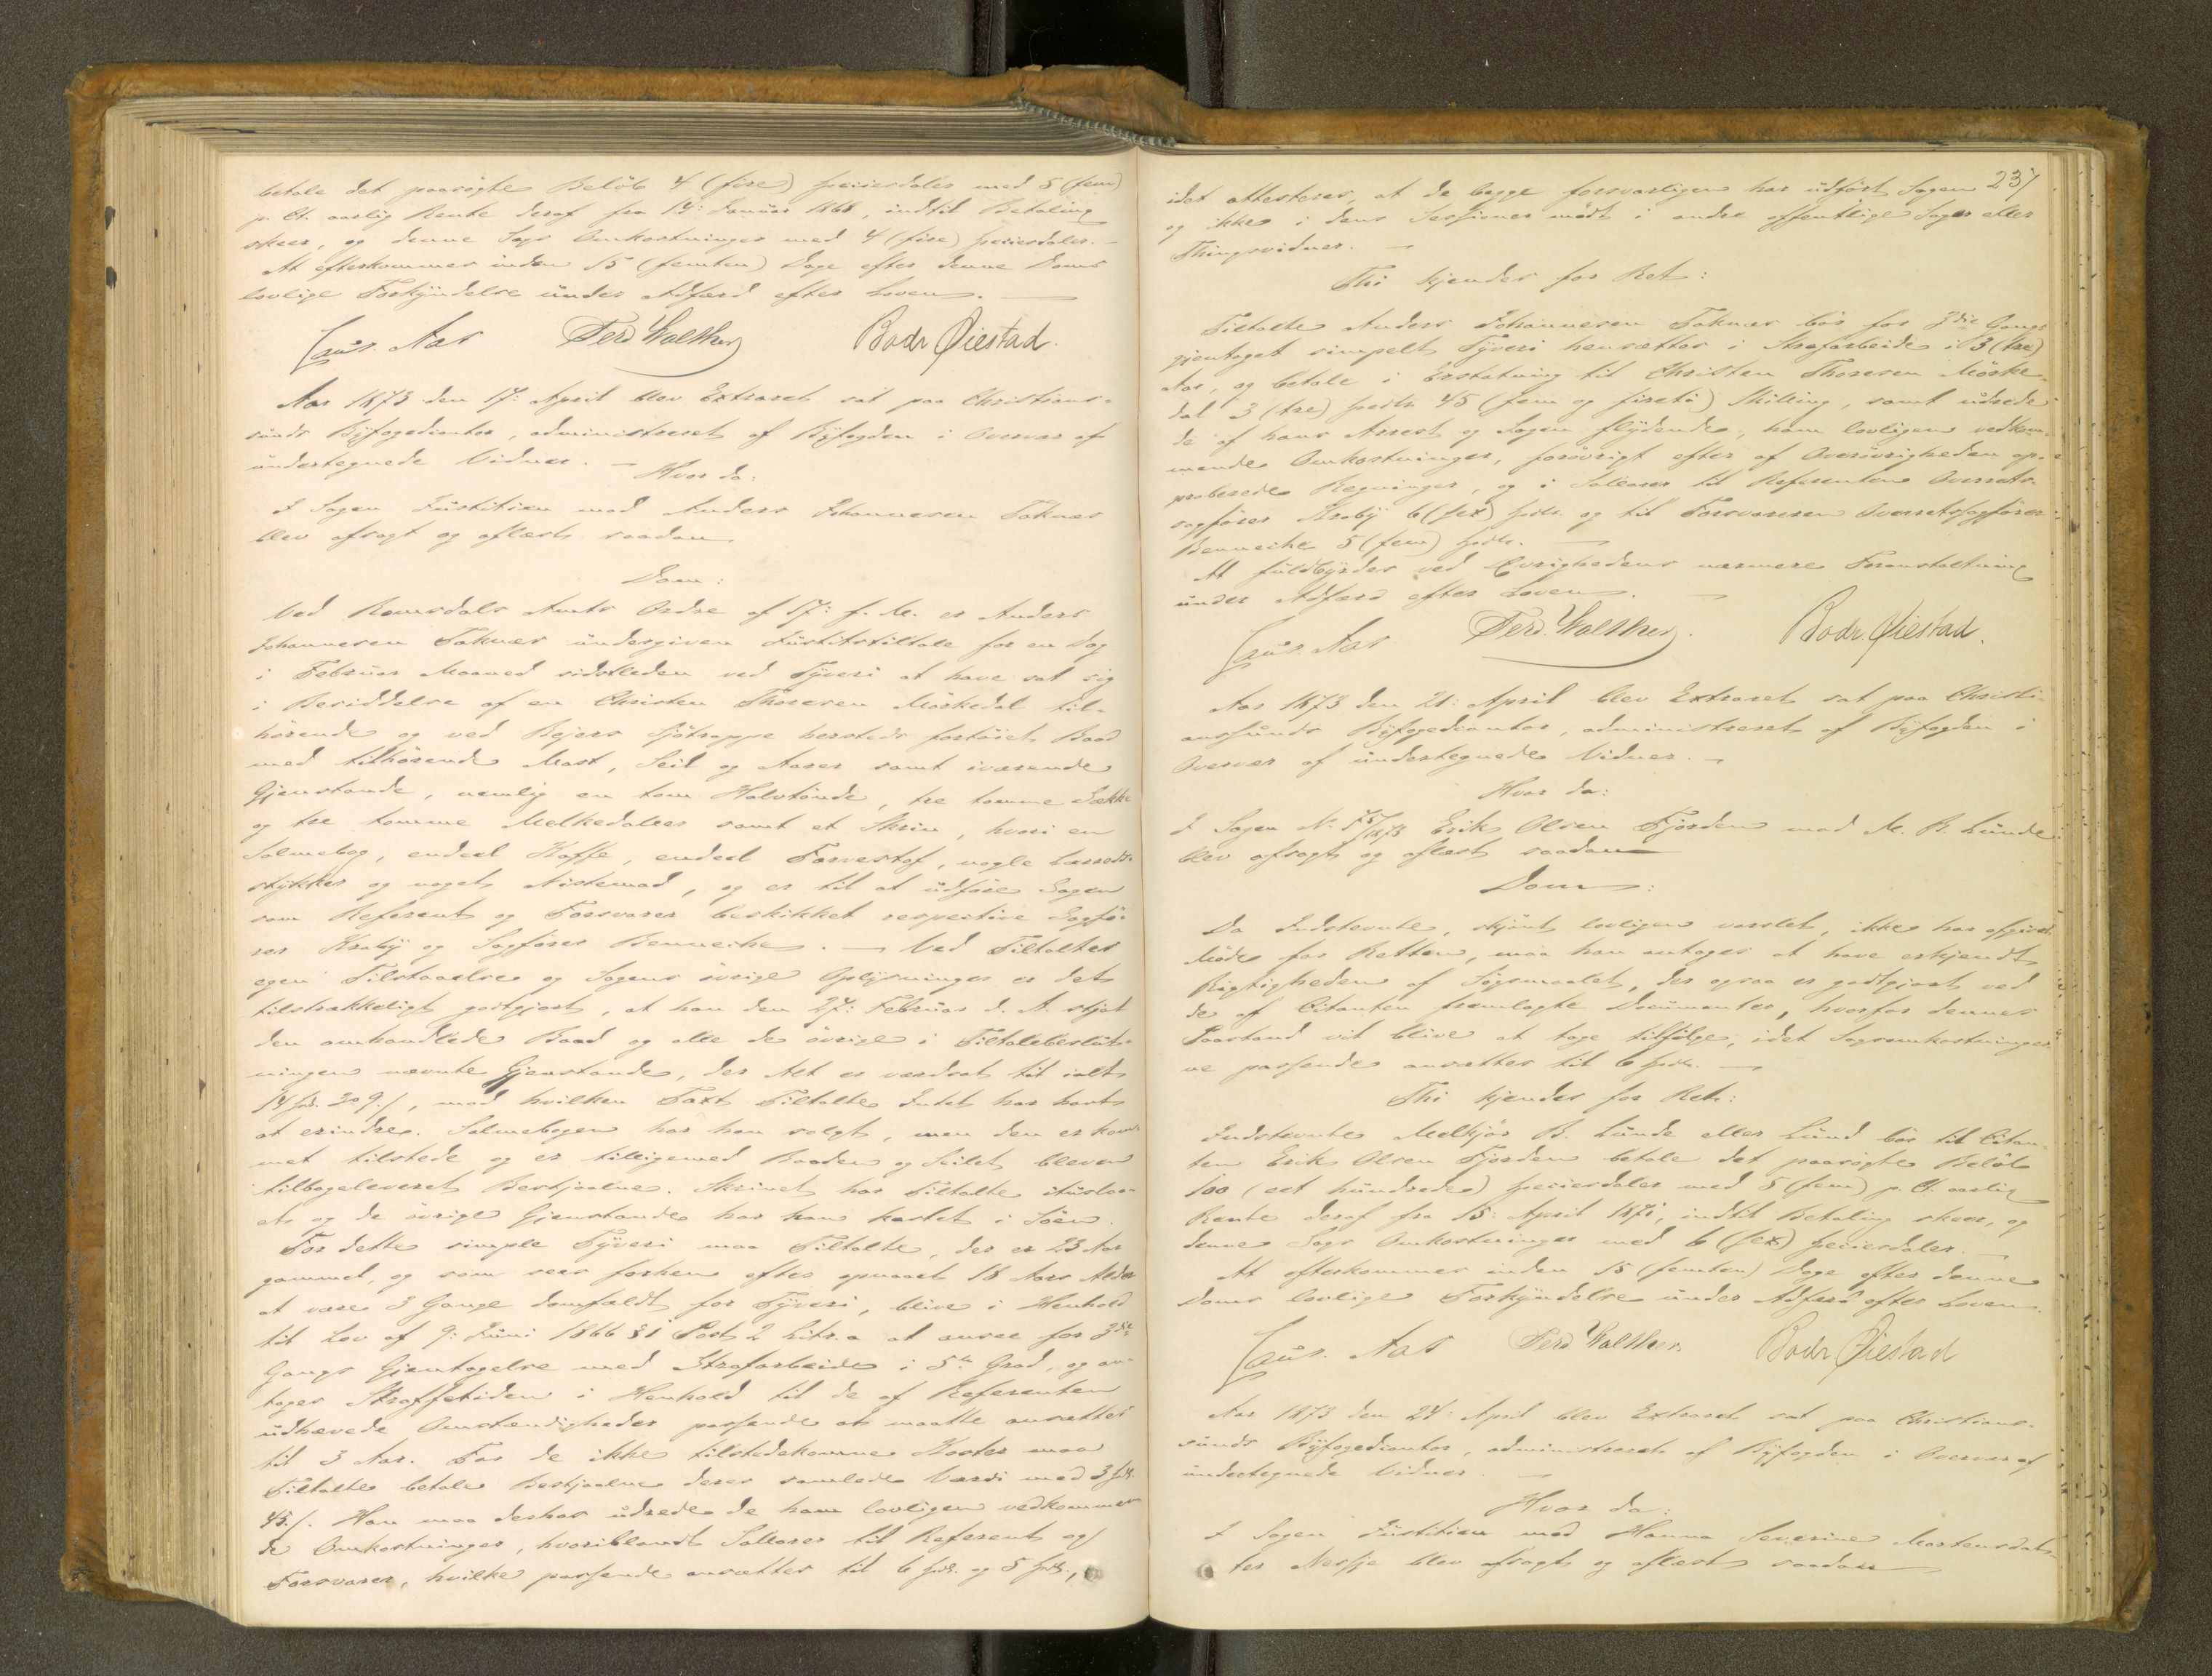 betale det paasøgte Beløb 4 (fire) speciesdaler med 5 (fem)
p. Ct. aarlig Rente deraf fra 14: Januar 1868, indtil Betaling
skeer, og denne Sags Omkostninger med 4 (fire) speciesdaler. —
At efterkommes inden 15 (femten) Dage efter denne Doms
lovlige Forkyndelse under Adfærd efter Loven. —
Aas Ferd Walther Bodr Øiestad.
Aar 1873 den 17: April blev Extraret sat paa Christians-
sunds Byfogedcontor, administreret af Byfogden i Overvær af
undertegnede Vidner. —
Hvor da:
I Sagen Justitien mod Anders Johannesen Taknæs
blev afsagt og aflæst saadan
Dom:
Ved Romsdals Amts Ordre af 17: f. M. er Anders
Johannesen Taknæs undergiven Justitstiltale for en Dag
i Februar Maaned sidstleden ved Tyveri at have sat sig
i Besiddelse af en Christen Thoresen Mørkedal til-
hørende og ved Bejers Sjøtrappe hersteds fortøiet Baad
med tilhørende Mast, Seil og Aarer samt iværende
Gjenstande, nemlig en tom Halvtønde, tre tomme Sække
og tre tomme Melkedaller samt et Skrin, hvori en
Salmebog, endeel Kaffe, endeel Farvestof, nogle Lærreds-
stykker og noget Nistemad, og er til at udføre Sagen
som Referent og Forsvarer beskikket respective Sagfø-
rer Kraby og Sagfører Benneche. — Ved Tiltaltes
egen Tilstaaelse og Sagens øvrige Oplysninger er det
tilstrækkeligt godtgjort, at han den 27: Februar d. A. stjal
den omhandlede Baad og alle de øvrige i Tiltalebeslut-
ningen nævnte Gjenstande, der Alt er værdsat til ialt
14 spd. , mod hvilken Taxt Tiltalte Intet har havt
at erindre. Salmebogen har han solgt, men den er kom-
met tilstede og er tilligemed Baaden og Seilet bleven
tilbageleveret Bestjaalne. Skrinet har Tiltalte ituslaa-
et og de øvrige Gjenstande har han kastet i Søen.
For dette simple Tyveri maa Tiltalte, der er 23 Aar
gammel, og som sees forhen efter opnaaet 18 Aars Alder
at være 3 Gange domfældt for Tyveri, blive i Henhold
til Lov af 9: Juni 1866 § 1 Post 2 Litr. a at ansee for 3die
Gangs Gjentagelse med Strafarbeide i 5te Grad, og an-
tages Straffetiden i Henhold til de af Referenten
udhævede Omstændigheder passende at maatte ansættes
til 3 Aar. For de ikke tilstedekomne Koster maa
Tiltalte betale Bestjaalne deres samlede Værdi med 3 spd.
45 s. Han maa derhos udrede de ham lovligen vedkommen-
de Omkostninger, hvoriblandt Sallarer til Referent og
Forsvarer, hvilke passende ansættes til 6 spd. og 5 spd.,
237
idet attesteres, at de begge forsvarligen har udført Sagen
og ikke i dens Sessioner mødt i andre offentlige Sager eller
Thingsvidner. —
Thi kjendes for Ret:
Tiltalte Anders Johannesen Taknæs bør for 3die Gangs
gjentaget simpelt Tyveri hensættes i Strafarbeide i 3 (tre)
Aar, og betale i Erstatning til Christen Thoresen Mørke-
dal 3 (tre) spdlr. 45 (fem og fireti) Skilling, samt udrede
de af hans Arrest og Sagen flydende, ham lovligen vedkom-
mende Omkostninger, forøvrigt efter af Overøvrigheden ap-
proberede Regninger, og i Sallarer til Referenten Overrets-
sagfører Kraby 6 (sex) spdlr. og til Forsvareren Overretssagfører
Benneche 5 (fem) spdlr. —
At fuldbyrdes ved Øvrighedens nærmere Foranstaltning
under Adfærd efter Loven. —
Aas Ferd. Walther. Bodr. Øiestad.
Aar 1873 den 21: April blev Extraret sat paa Christi-
anssunds Byfogedcontor, administreret af Byfogden i
Overvær af undertegnede Vidner. —
Hvor da:
I Sagen No. /1873 Erik Olsen Fjorden mod M. B. Lunde
blev afsagt og aflæst saadan
Dom:
Da Indstevnte, skjønt lovligen varslet, ikke har afgivet
Møde for Retten, maa han antages at have erkjendt
Rigtigheden af Søgsmaalet, der ogsaa er godtgjort ved
de af Citanten fremlagte Documenter, hvorfor dennes
Paastand vil blive at tage tilfølge, idet Sagsomkostninger-
ne passende ansættes til 6 spdlr. —
Thi kjendes for Ret:
Indstevnte Melkjør B. Lunde eller Lund bør til Citan-
ten Erik Olsen Fjorden betale det paasøgte Beløb
100 (eet hundrede) speciesdaler med 5 (fem) p. Ct. aarlig
Rente deraf fra 15: April 1871, indtil Betaling skeer, og
denne Sags Omkostninger med 6 (sex) speciesdaler. —
At efterkommes inden 15 (femten) Dage efter denne
Doms lovlige Forkyndelse under Adfærd efter Loven.
Aas Ferd Walther. Bodr Øiestad
Aar 1873 den 24: April blev Extraret sat paa Christians-
sunds Byfogedcontor, administreret af Byfogden i Overvær af
undertegnede Vidner. —
Hvor da:
I Sagen Justitien mod Hanna Severine Mortensdat-
ter blev afsagt og aflæst saadan